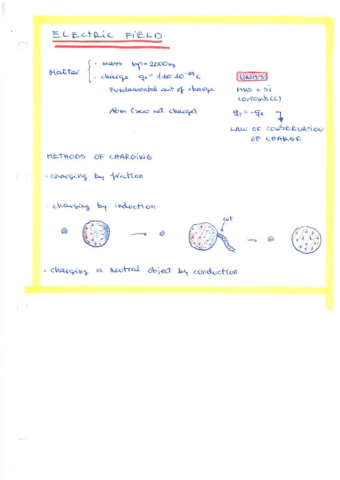 ELECTRIC FIELD
Matter
· mass
· charge
UNITS
Fundamental unit of charge
MKS = SI
coulomb (C)
Atom (zero net charge)
LAW OF CONSERVATION
OF CHARGE
METHODS OF CHARGING
· charging by friction
· charging by induction
cut
· charging a neutral object by conduction